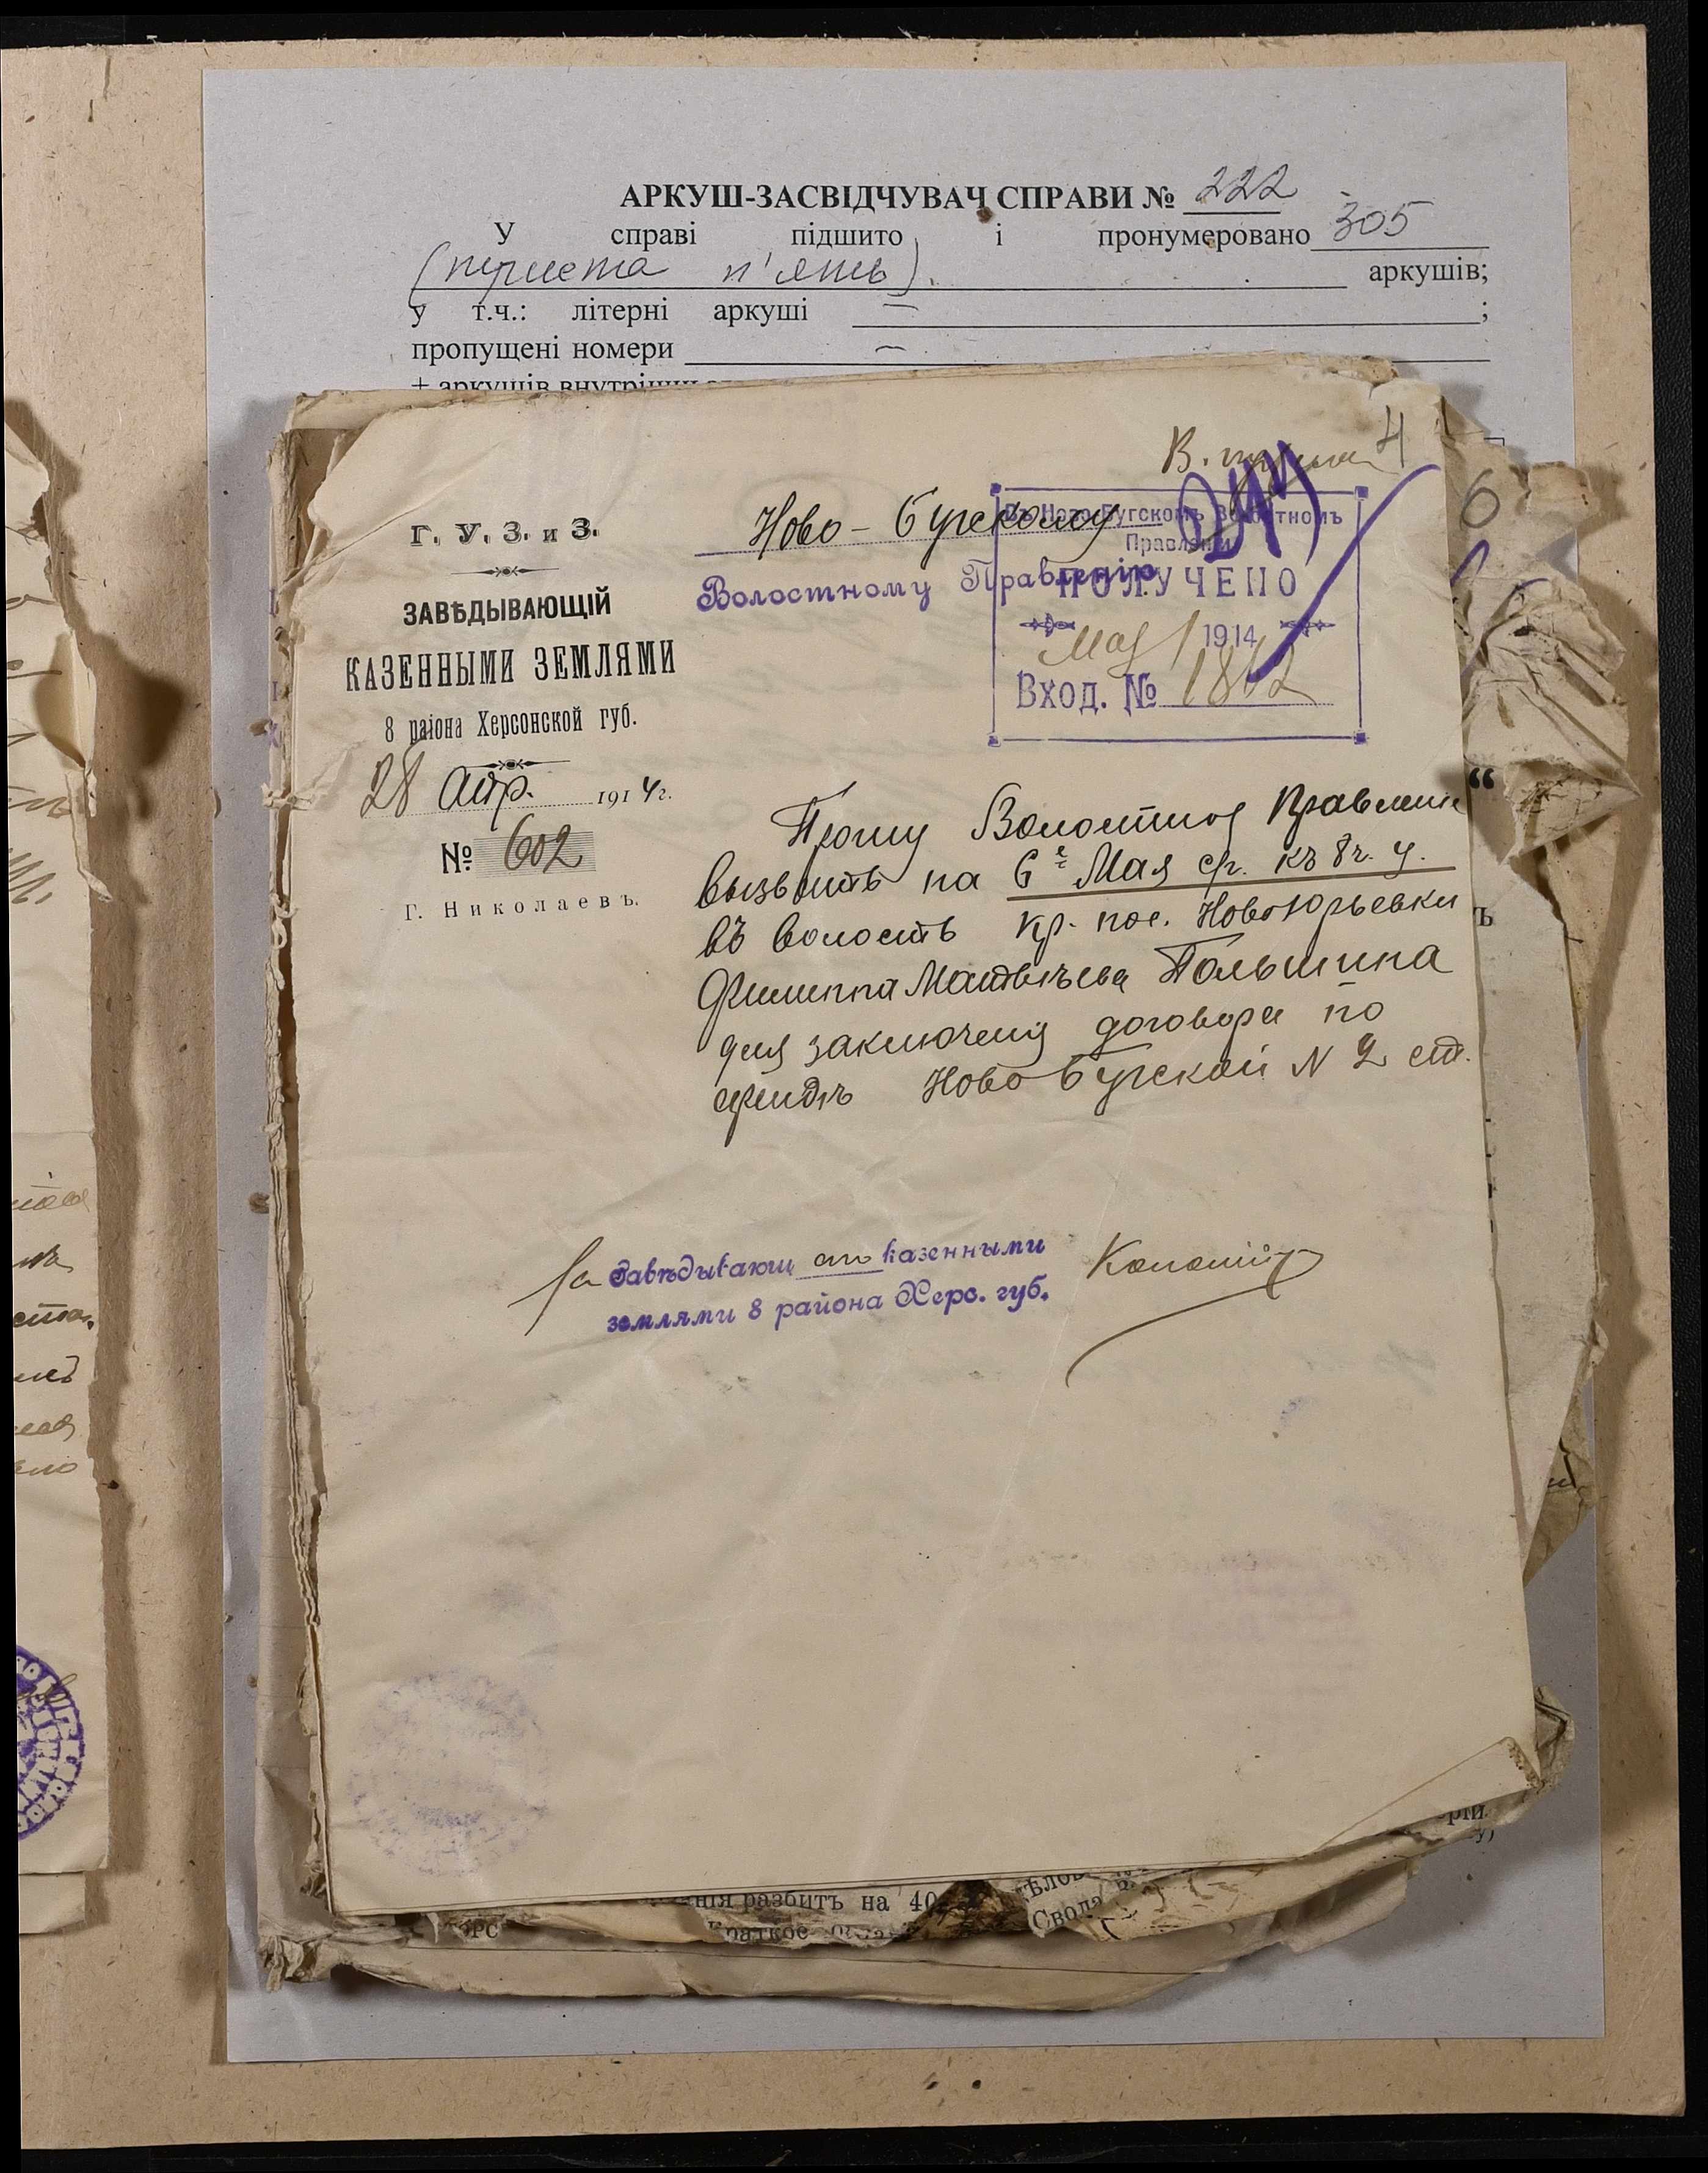 АРКУШ-ЗАСВІДЧУВАЧ СПРАВИ № 222
У справі підшито і пронумеровано 305
(триста п'ять). аркушів;
у т.ч.: літерні аркуші — ;
пропущені номери —
+ аркушів внутрішн
В.
4
6
Г. У. З. и З.
ЗАВѢДЫВАЮЩІЙ
КАЗЕННЫМИ ЗЕМЛЯМИ
8 раіона Херсонской губ.
28 Апр. 1914 г.
№ 602
Г. Николаевъ.
Ново-Бугскому
Волостному Правленію
Въ Ново-Бугскомъ Волостномъ
Правленіи
ПОЛУЧЕНО
Мая 1 1914
Вход. № 1862
Прошу Волостное Правленіе
вызвать на 6е Мая ср. къ 8 ч. у.
въ волость кр. пос. НовоЮрьевки
Филиппа Матвѣева Польшина
для заключенія договора по
арендѣ НовоБугской N 2 ст.
За Завѣдывающ аго казенными
землями 8 района Херс. губ.
нія разбитъ на 40
Краткое
Свода